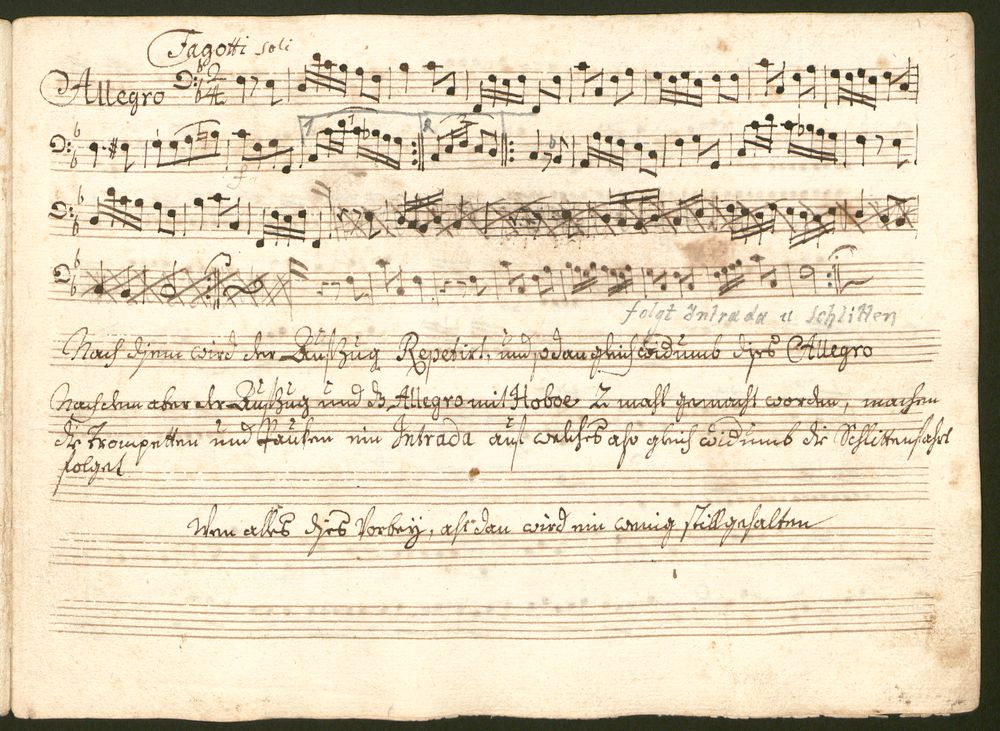 Fagotti soli
Allegro 2/4
1 1 2 2
folgt Intrada u Schlitten
Nach disem wird der Aufzug Repetirt, und sodan gleich widrumb dises Allegro
Nachdem aber der Aufzug und ds Allegro mit Hoboe 2 mahl gemacht worden, machen
die Trompetten und Pauken ein Intrada auf welches also gleich widrumb die Schlittenfahrt
folget
Wen alles dises Vorbey, alsdan wird ein wenig still gehalten